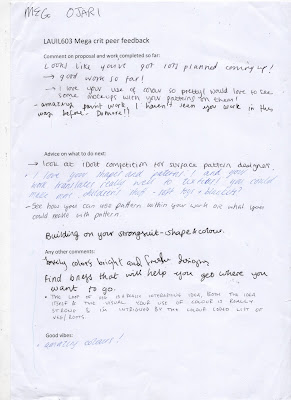 MEG OJARI
LAUIL603 Mega crit peer feedback
Comment on proposal and work completed so far:
Looks like you've got lots planned coming up!
→ good work so far!
→ I love your use of colour so pretty! would love to see
some mockups with your patterns on them!
- amazing paint work, I haven't seen you work in this
way before. Do more!!
Advice on what to do next:
→ look at iDott competition for surface pattern designer
- I love your shapes and patterns! and your
work translates really well to textiles! you could
make more children's soft toy + blanket?
- See how you can use pattern within your work and what you
could make with pattern.
Building on your strongsuit - shape & colour.
Any other comments:
lovely colours bright and designs
Find briefs that will help you get where you
want to go.
• THE LOOK OF IS A REALLY INTERESTING IDEA, BOTH THE IDEA
ITSELF & THE VISUAL. YOUR USE OF COLOUR IS REALLY
STRONG & I'M INTRIGUED BY THE COLOUR LIST OF
Good vibes:
• amazing colours!